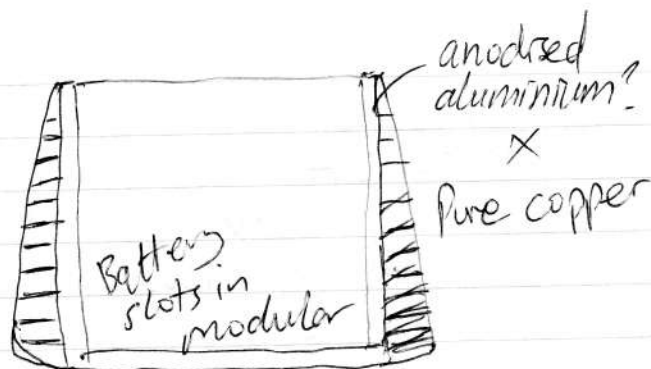 anodised
aluminium?
×
Pure copper
Battery
slots in
modular